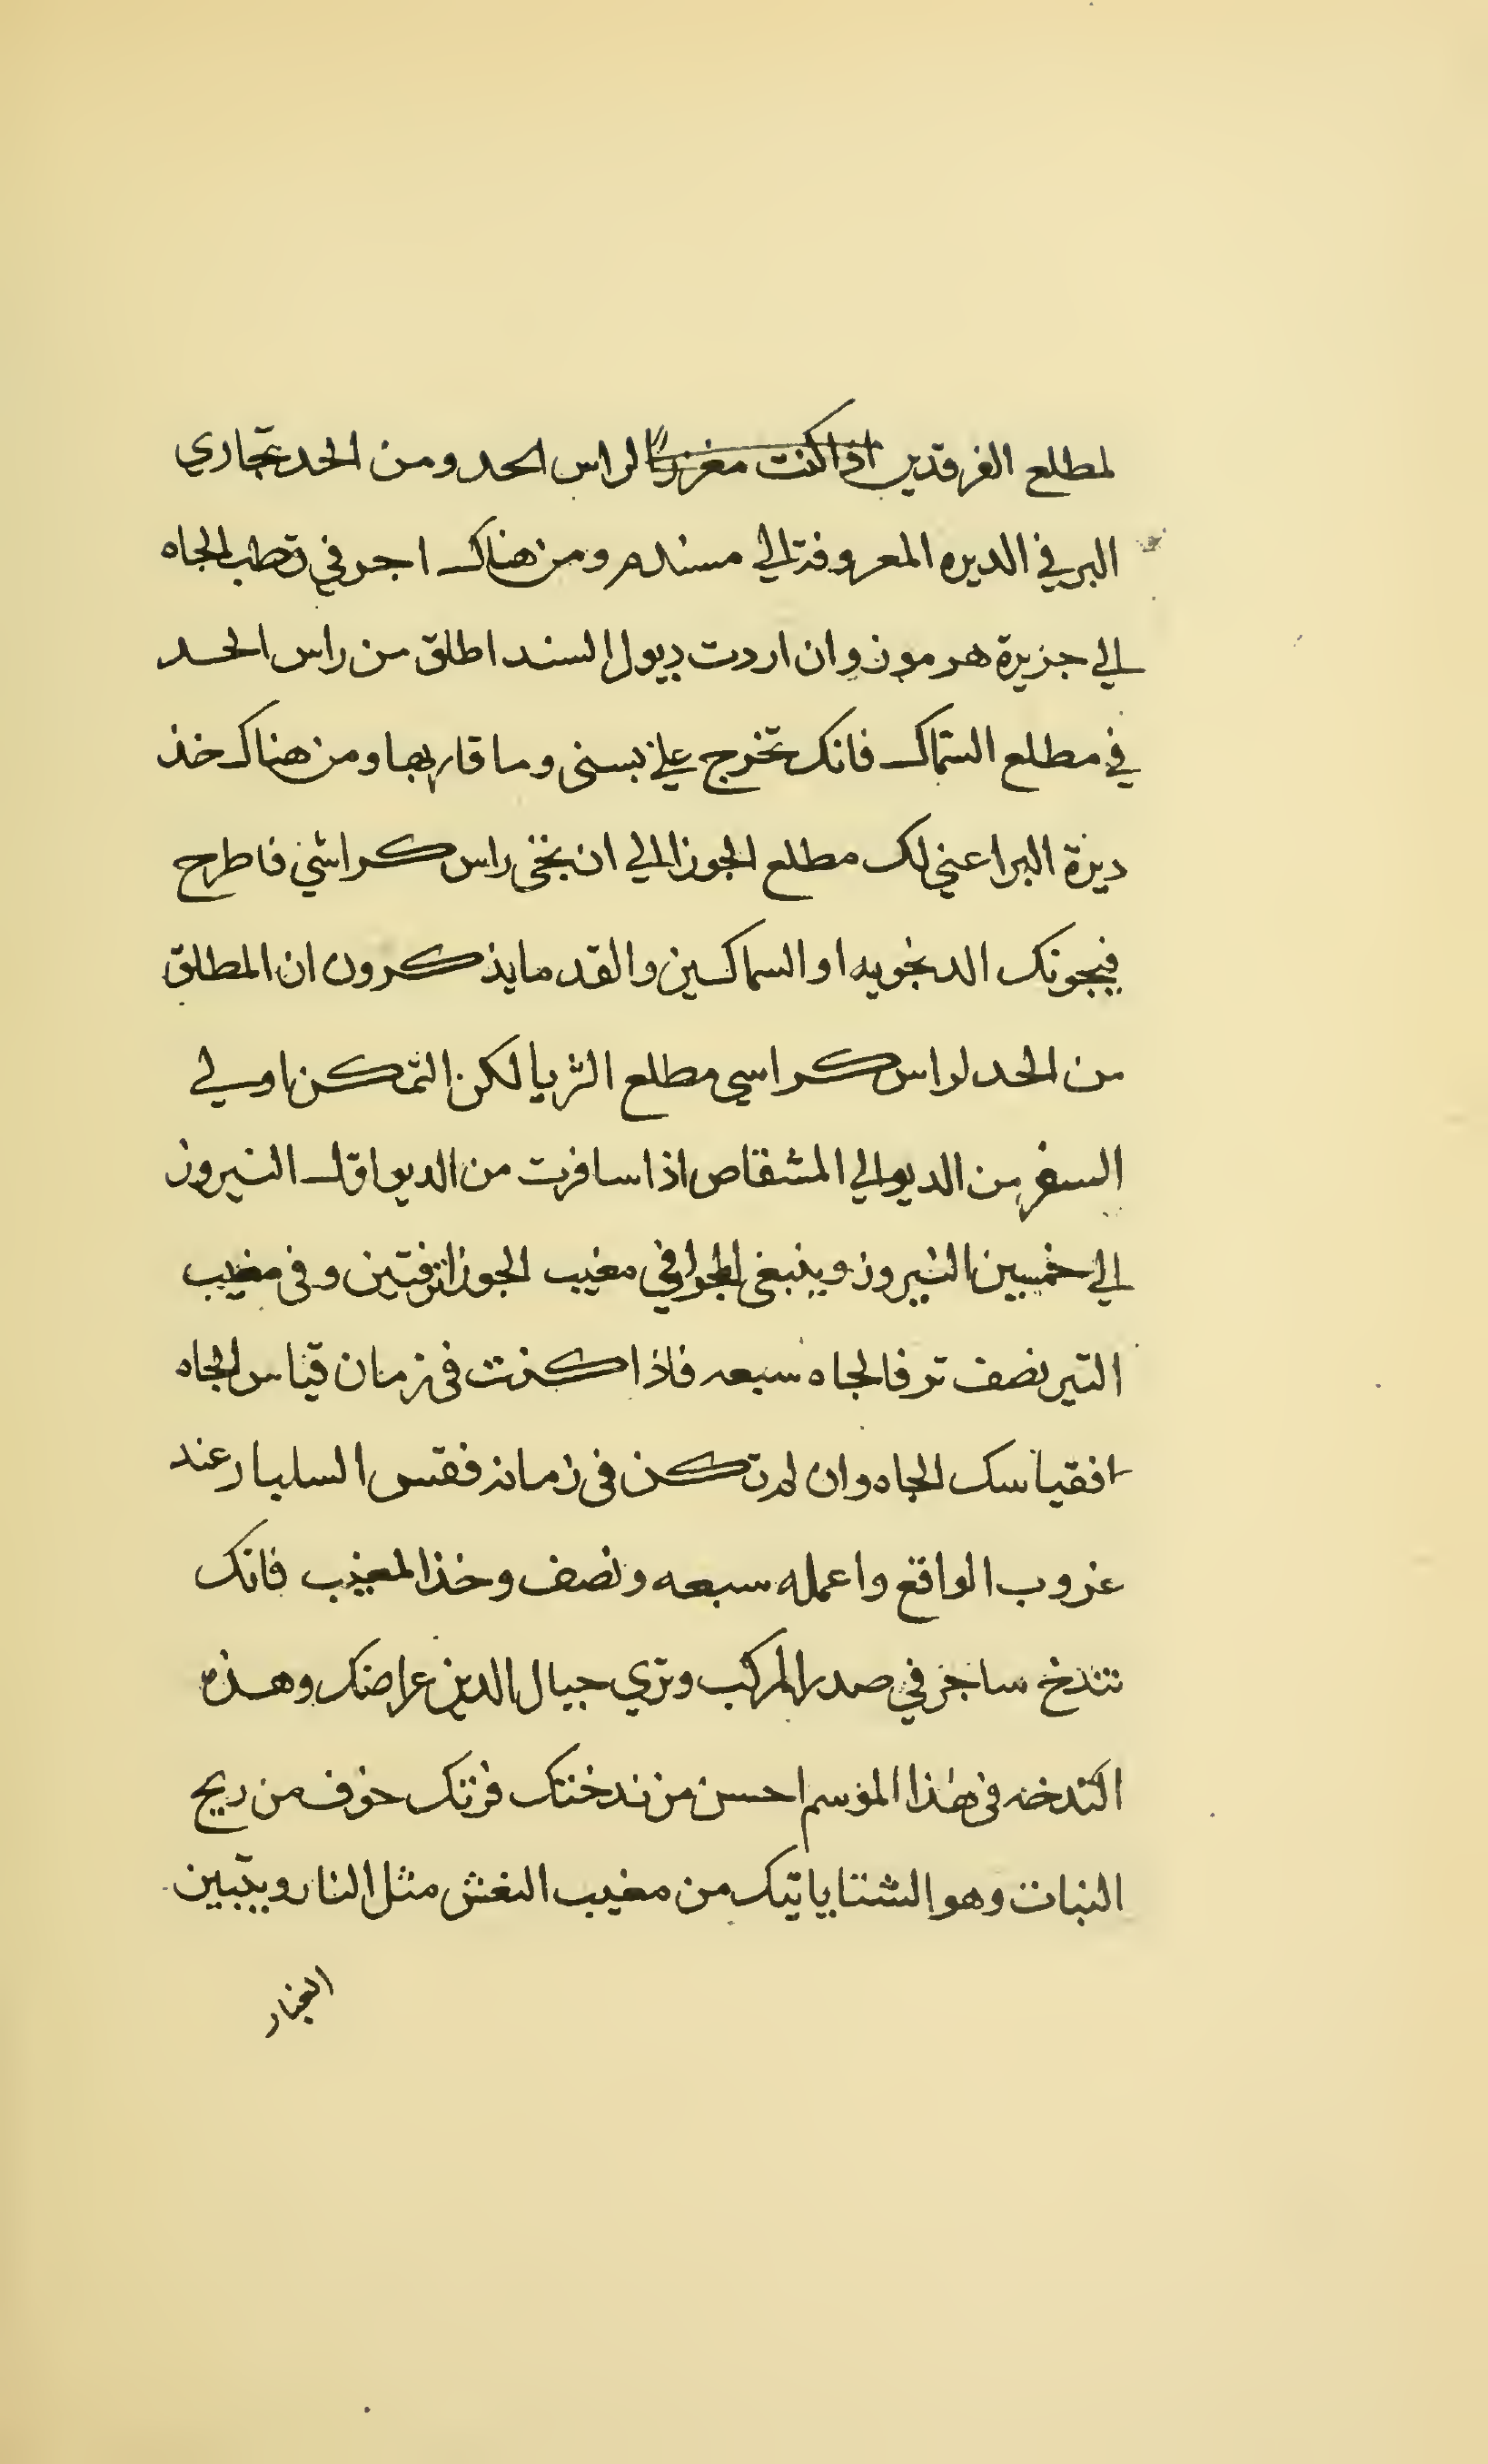 لمطلع الفرقدين اذا كنت مغزرًا لراس الحد ومن الحد تجاري
البر في الديره المعروفة الي مسندم ومن هناك اجر في قطب الجاه
الي جزيرة هرموز وان اردت ديول السند اطلق من راس الحد
في مطلع السماك فانك تخرج علي بسنى وما قاربها ومن هناك خذ
ديرة البر اعني لك مطلع الجوزا الي ان بخى راس كراشي فاطرح
فيجونك الدنجويه او السماكين والقدما يذكرون ان المطلق
من الحد لراس كراسي مطلع الثريا لكن التمكن اولي
السفر من الديو الي المشقاص اذا سافرت من الديو اول النيروز
الي خمسين النيروز وينبغي المجرا في مغيب الجوزا ترفتين وفي مغيب
التير نصف ترفا لجاه سبعه فاذا كنت في زمان قياس الجاه
افقياسك الجاه وان لم تكن في زمانه فقس السلبار عند
غروب الواقع واعمله سبعه ونصف وخذ المغيب فانك
تتدخ ساجر في صدر المركب وتري جبال الدين عراضك وهذه
التدخه في هذا الموسم احسن من ندختك فرتك خوف من ريح
النبات وهو الشتا ياتيك من مغيب النعش مثل النار ويتبين
الغبار